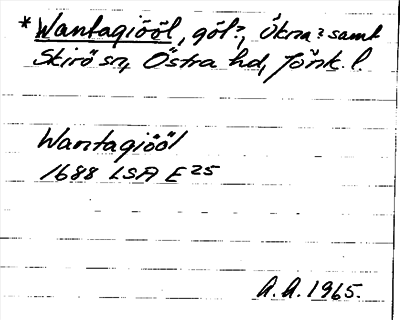 *Wantagiööl, göl?, Ökna? samt
Skirö sn, Östra hd, Jönk. l.
Wantagiööl
1688 LSA E25
A.A. 1965.